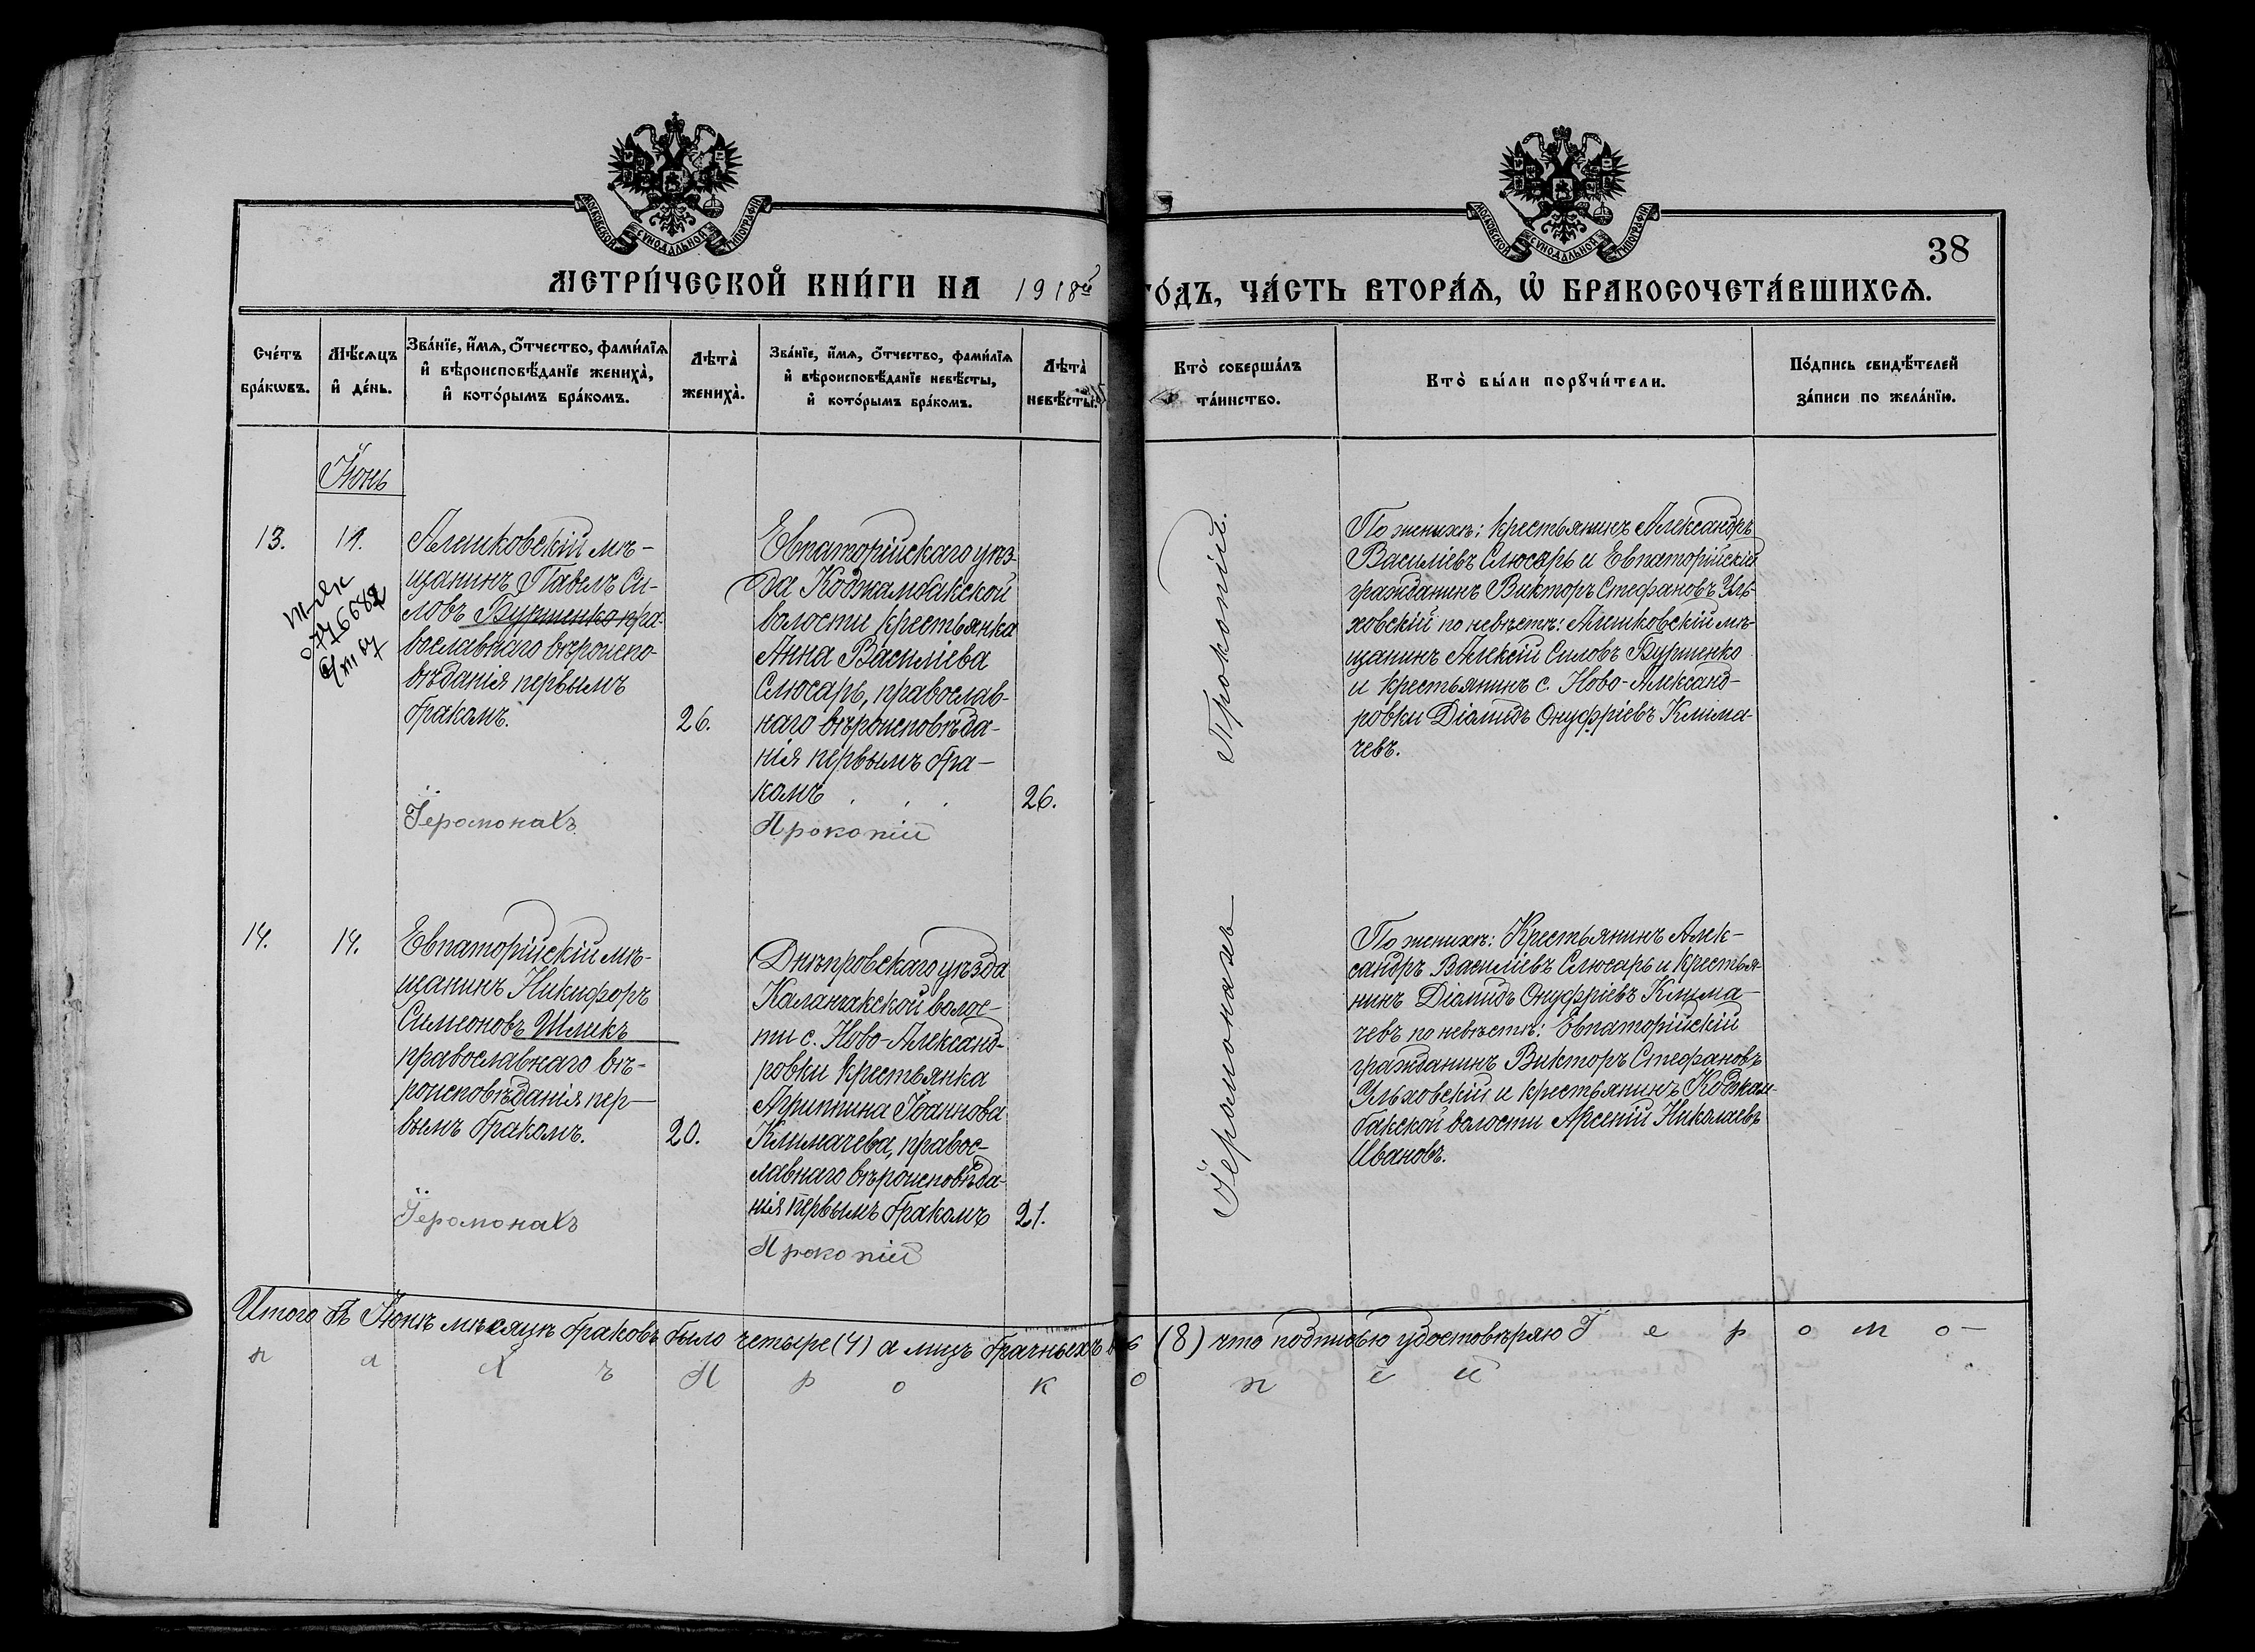 МОСКОВСКОЙ СѴНОДАЛЬНОЙ ТИПОГРАФІИ
МОСКОВСКОЙ СѴНОДАЛЬНОЙ ТИПОГРАФІИ
38
МЕТРИ́ЧЕСКОЙ КНИ́ГИ НА 1918й ГО́ДЪ, ЧА́СТЬ ВТОРА́Ѧ, Ѡ҆ БРАКОСОЧЕТА́ВШИХСѦ.
Сче́тъ
бра́кѡвъ.
Мѣ́сѧцъ
и҆ де́нь.
Зва́нїе, и҆́мѧ, ѻ҆́тчество, фами́лїѧ
и҆ вѣроисповѣ́данїе жениха̀,
и҆ кото́рымъ бра́комъ.
Лѣта̀
жениха̀.
Зва́нїе, и҆́мѧ, ѻ҆́тчество, фами́лїѧ
и҆ вѣроисповѣ́данїе невѣ́сты,
и҆ кото́рымъ бра́комъ.
Лѣта̀
невѣ́сты.
Кто̀ соверша́лъ
та́инство.
Кто̀ бы́ли порꙋчи́тели.
По́дпись свидѣ́телей
за́писи по жела́нїю.
Іюнь
13.
11.
Алешковскій мѣ-
щанинъ Павелъ Си-
ловъ Бурменко пра-
вославнаго вѣроиспо-
вѣданія первымъ
бракомъ.
26.
Іеромонахъ
Евпаторійскаго уѣз-
да Коджамбакской
волости крестьянка
Анна Василіева
Слюсарь, православ-
наго вѣроисповѣда-
нія первымъ бра-
комъ . . .
26.
Прокопій
Прокопій.
По женихѣ: крестьянинъ Александръ
Василіевъ Слюсарь и Евпаторійскій
гражданинъ Викторъ Стефановъ Уль-
ховскій по невѣстѣ: Алешковскій мѣ-
щанинъ Алексій Силовъ Бурменко
и крестьянинъ с. Ново-Александ-
ровки Діамидъ Онуфріевъ Клима-
чевъ.
14.
14.
Евпаторійскій мѣ-
щанинъ Никифоръ
Симеоновъ Шликъ
православнаго вѣ-
роисповѣданія пер-
вымъ бракомъ.
20.
Іеромонахъ
Днѣпровскаго уѣзда
Каланчакской волос-
ти с. Ново-Александ-
ровки крестьянка
Агриппина Іоаннова
Климачева, правос-
лавнаго вѣроисповѣда-
нія первымъ бракомъ
21.
Прокопій
Іеромонахъ
По женихѣ: Крестьянинъ Алек-
сандръ Василіевъ Слюсарь и крестья-
нинъ Діамидъ Онуфріевъ Клима-
чевъ по невѣстѣ: Евпаторійскій
гражданинъ Викторъ Стефановъ
Ульховскій и крестьянинъ Коджам-
бакской волости Арсеній Николаевъ
Ивановъ.
Итого въ Іюнѣ мѣсяцѣ браковъ было четыре (4) а лицъ брачныхъ (8) что подписью удостовѣряю Іеромо-
нахъ Прокопій